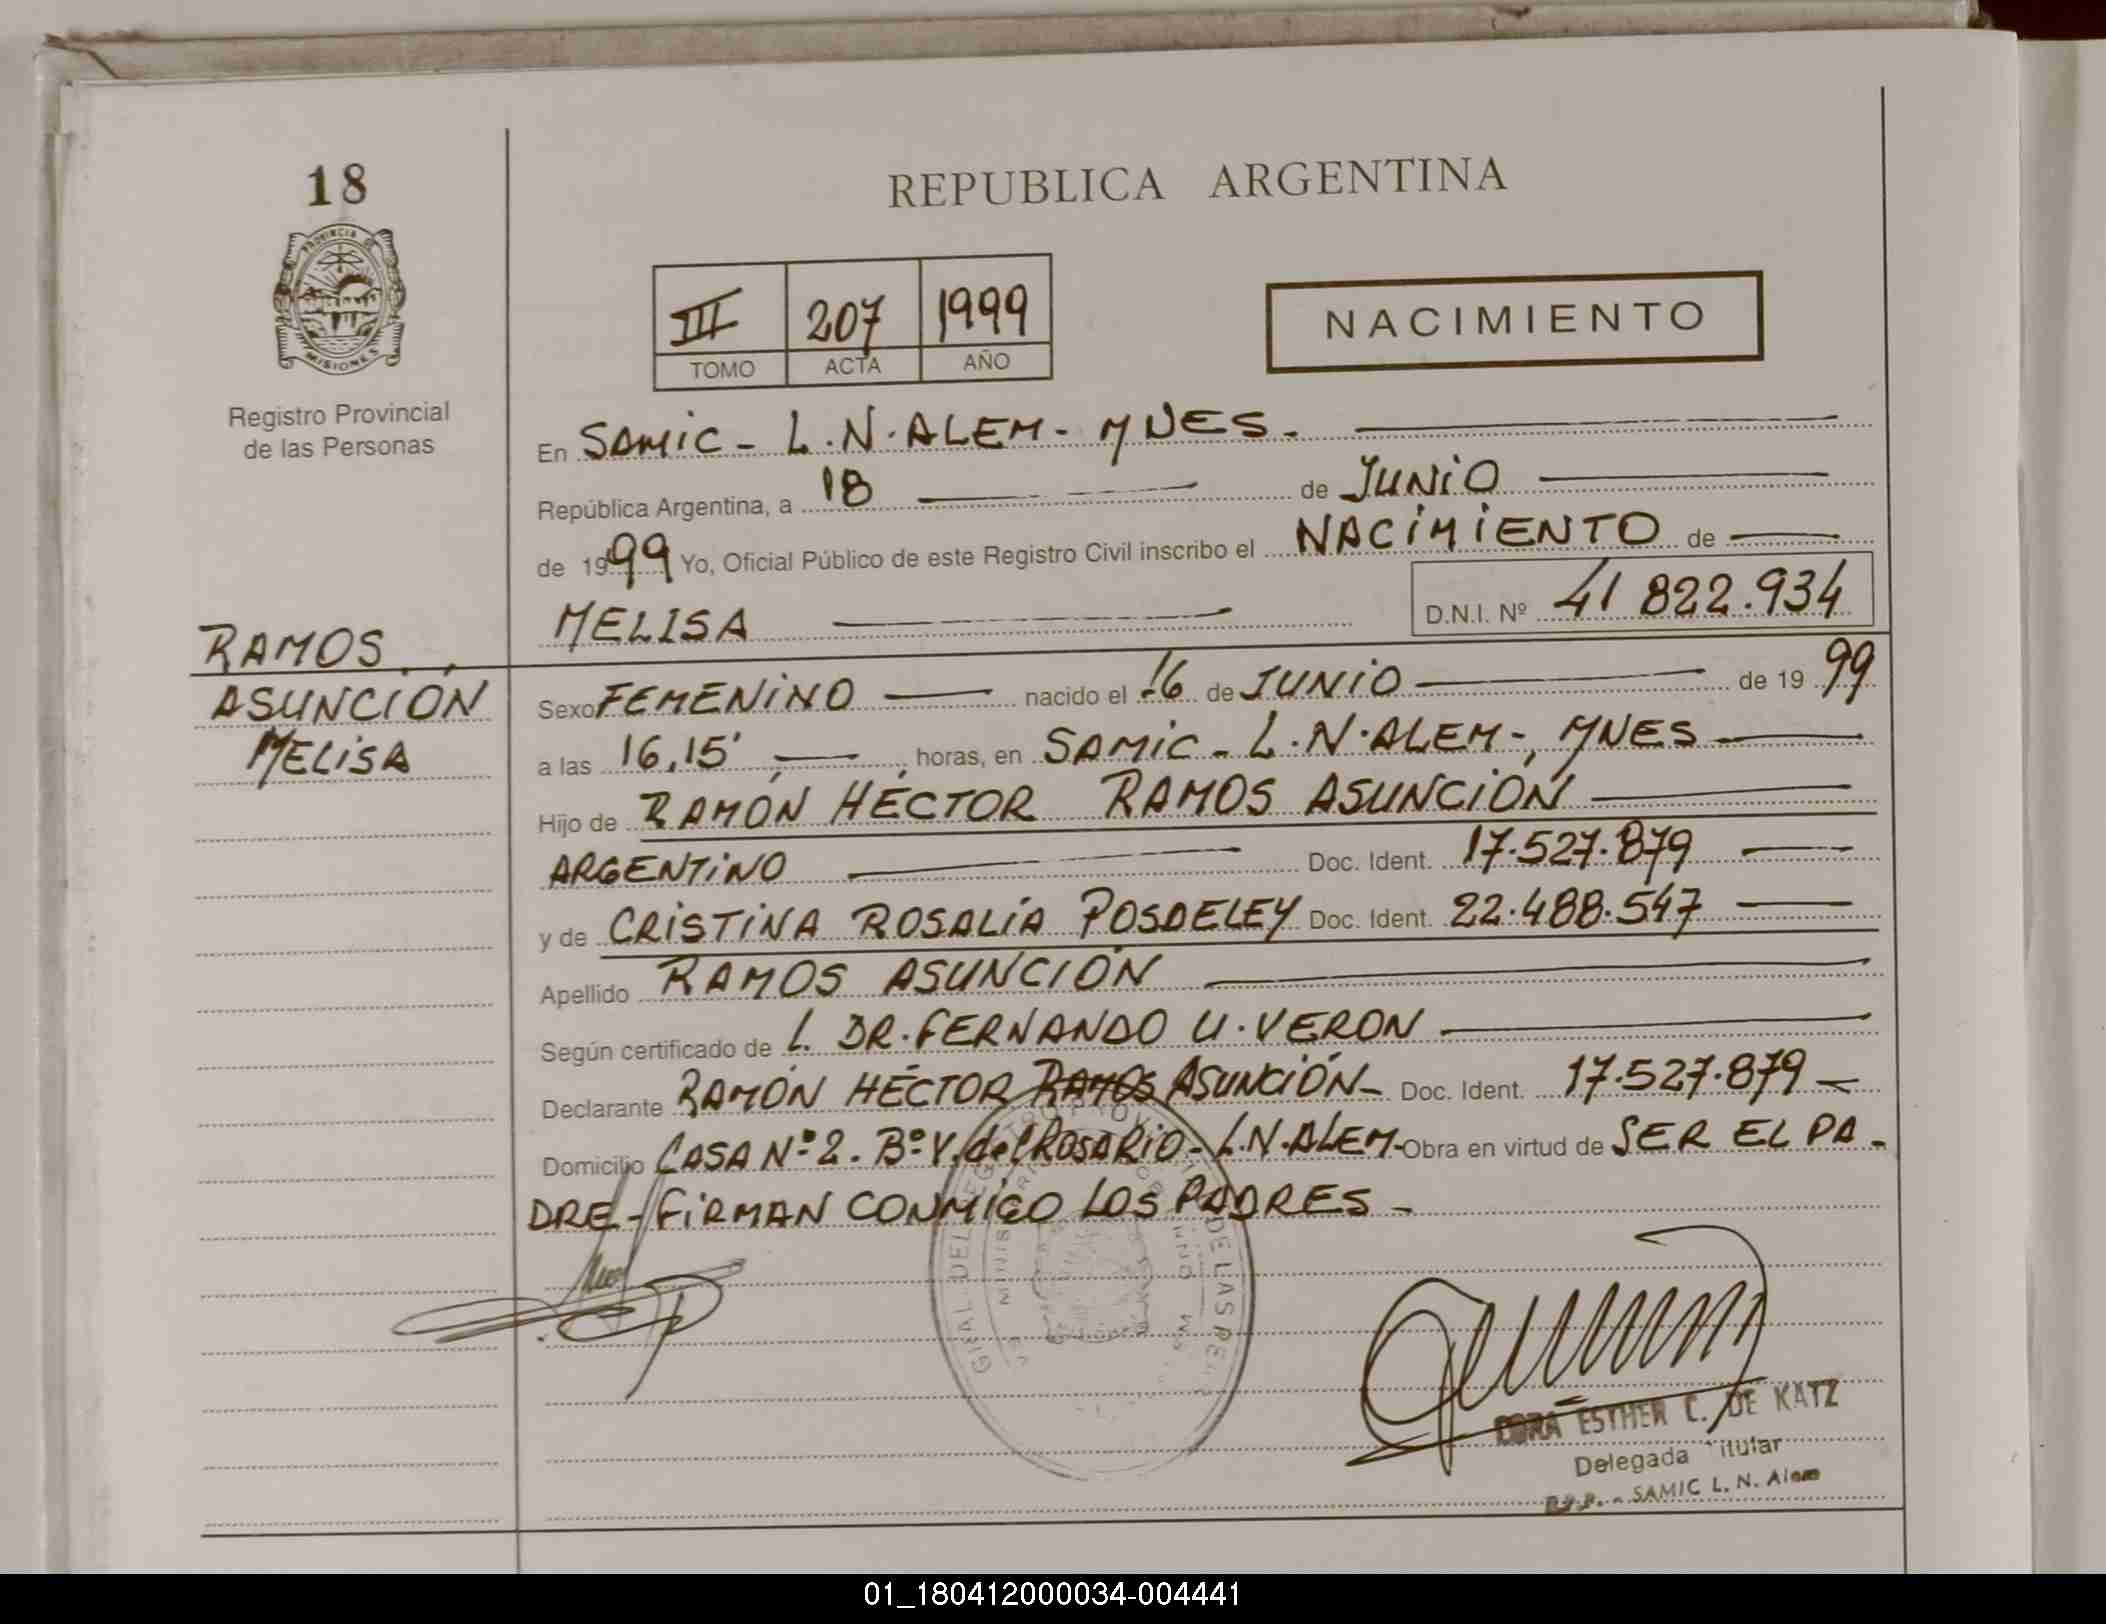 18
PROVINCIA DE
MISIONES
Registro Provincial
de las Personas
REPUBLICA ARGENTINA
III 207 1999
TOMO ACTA AÑO
NACIMIENTO
En SAMIC - L.N. ALEM - MNES.
República Argentina, a 18 de JUNIO
de 1999 Yo, Oficial Público de este Registro Civil inscribo el NACIMIENTO de
MELISA D.N.I. Nº 41 822.934
RAMOS
ASUNCIÓN
MELISA
Sexo FEMENINO nacido el 16 de JUNIO de 19 99
a las 16,15' horas, en SAMIC - L.N. ALEM -, MNES
Hijo de RAMÓN HÉCTOR RAMOS ASUNCIÓN
ARGENTINO Doc. Ident. 17.527.879
y de CRISTINA ROSALÍA POSDELEY Doc. Ident. 22.488.547
Apellido RAMOS ASUNCIÓN
Según certificado de DR. FERNANDO U. VERON
Declarante RAMÓN HÉCTOR RAMOS ASUNCIÓN - Doc. Ident. 17.527.879
Domicilio CASA Nº 2. Bº V. del ROSARIO - L.N. ALEM - Obra en virtud de SER EL PA-
DRE - FIRMAN CONMIGO LOS PADRES -
DORA ESTHER C. DE KATZ
Delegada Titular
SAMIC L. N. Alem
01_180412000034-004441